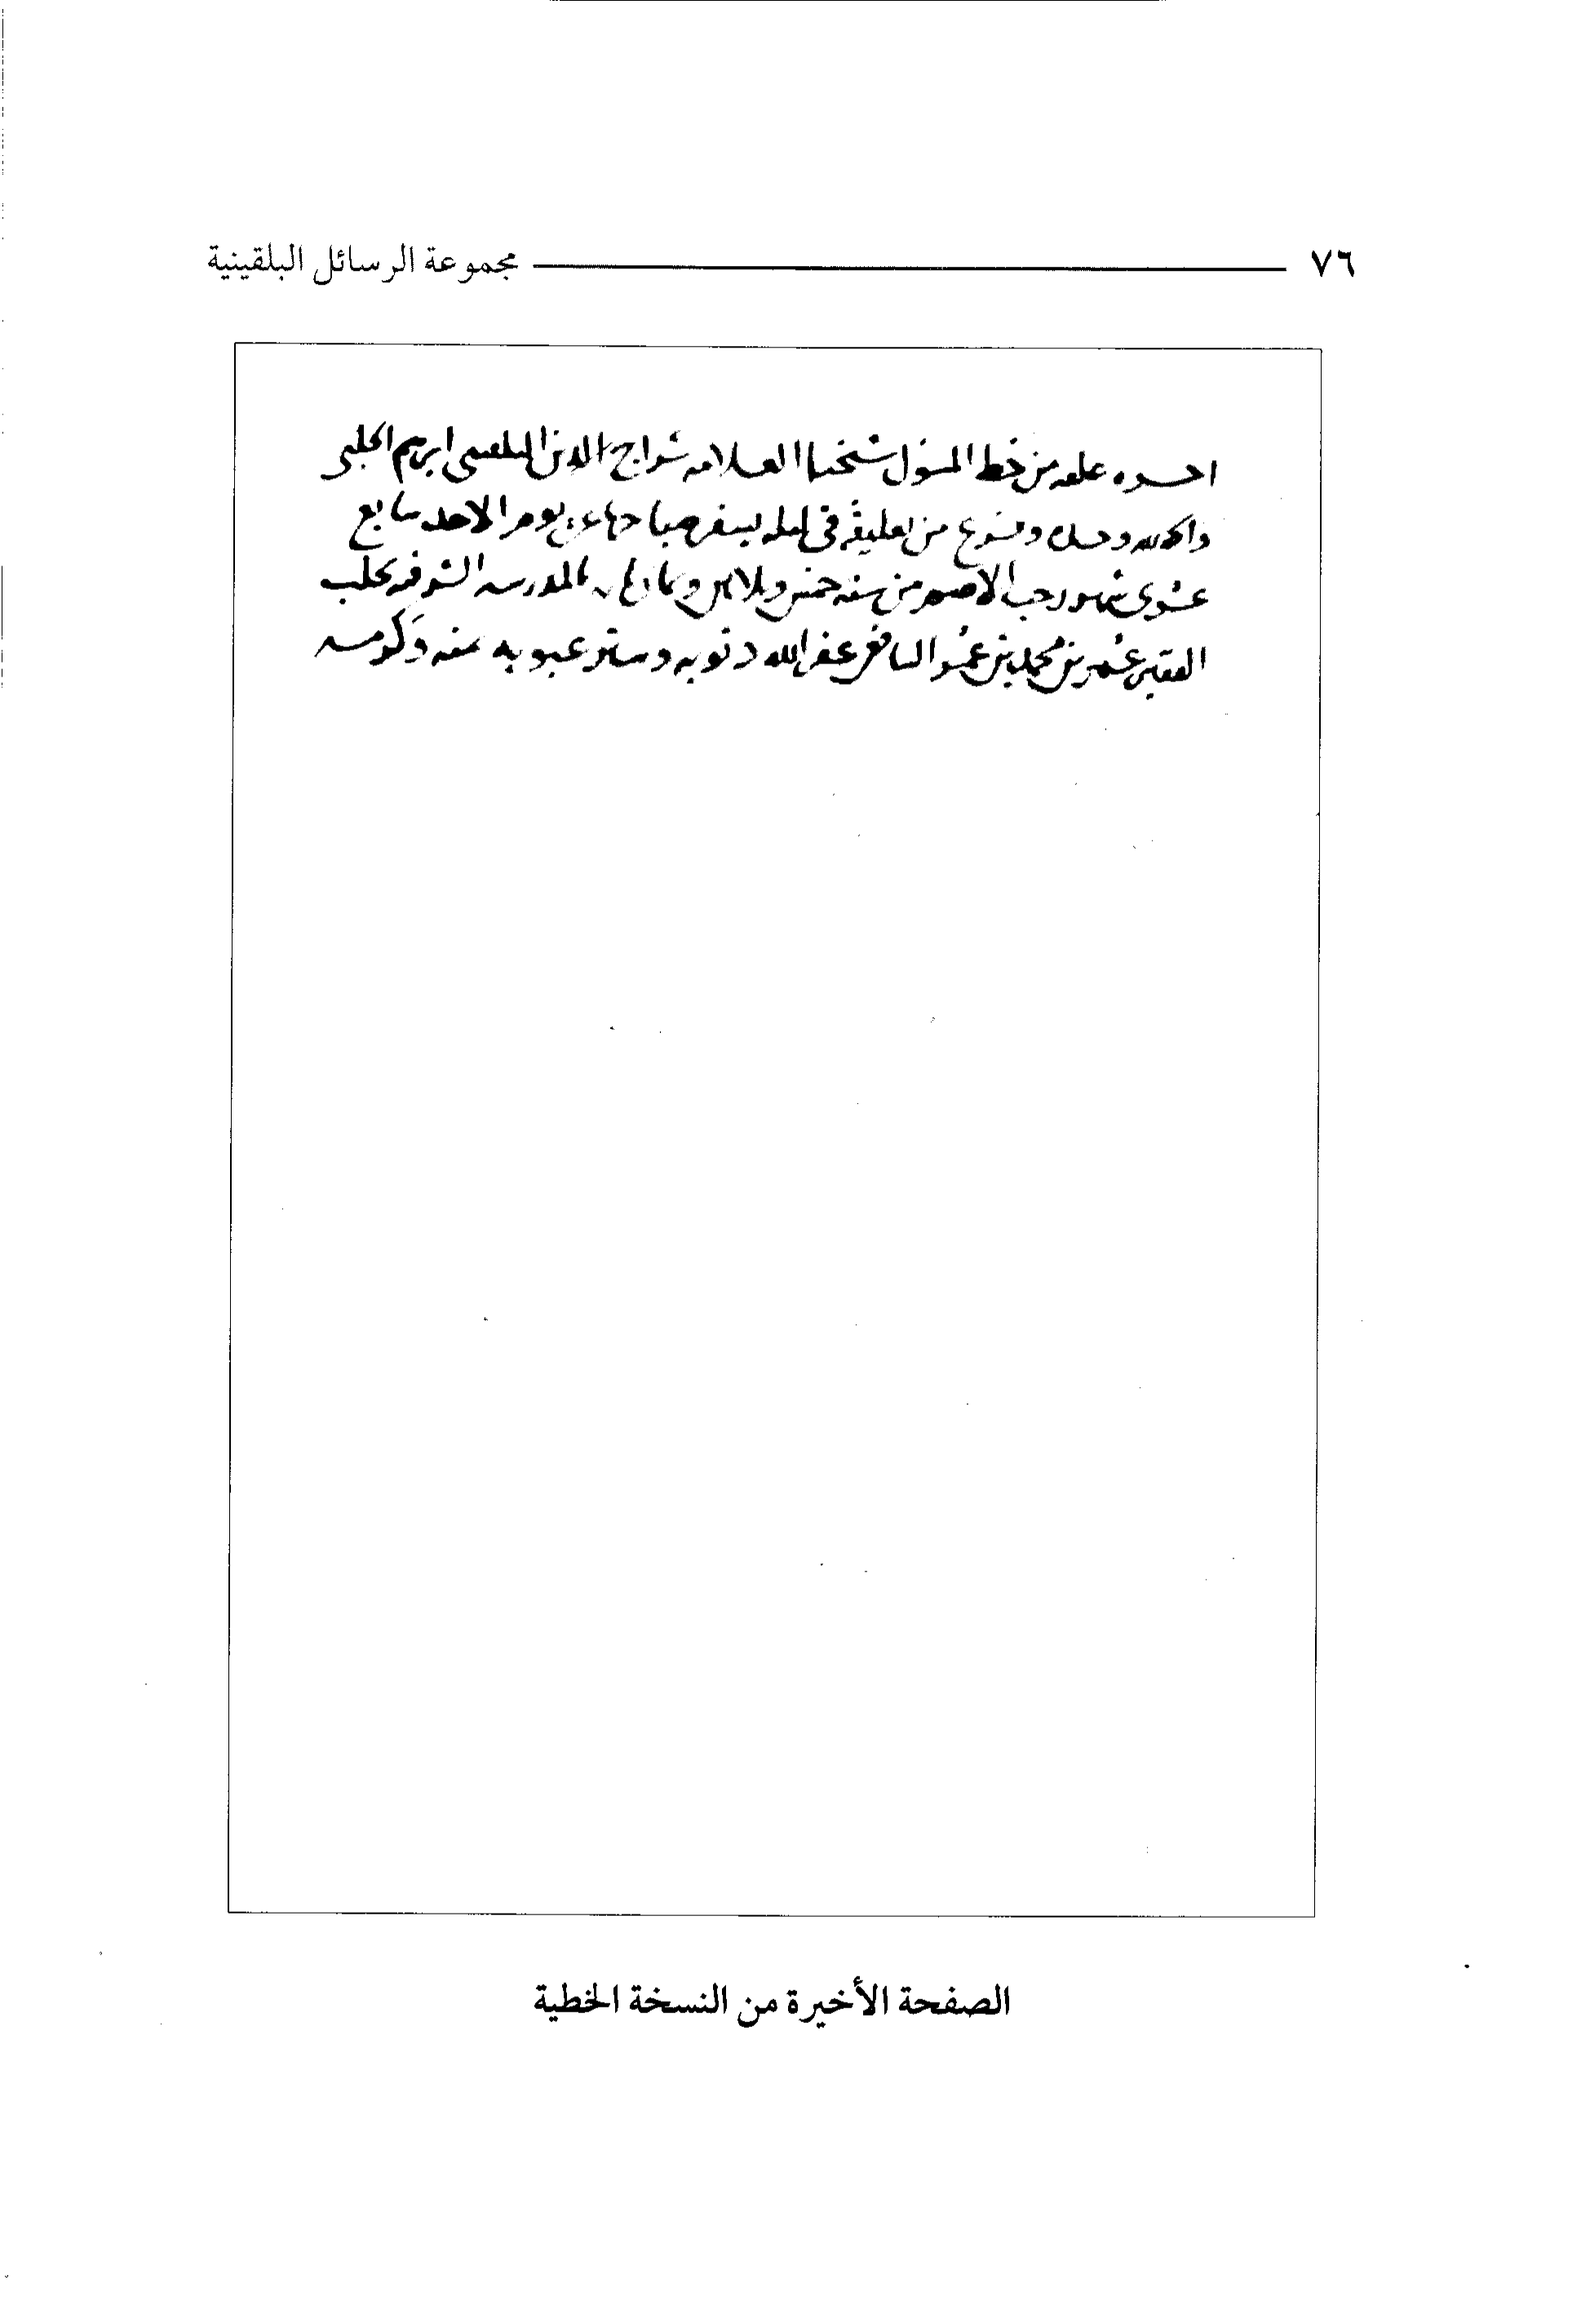 ٧٦ مجموعة الرسائل البلقينية
اخره علقه من خط المسؤول شيخنا العلامه سراج الدين البلقيني ابرهيم الحلبي
والحمد لله وحده وفرغ من تعليقه في ليله يسفر صباحها عن يوم الاحد سابع
عشري شهر رجب الاصم من سنه خمس وثلاثين وثمانمايه بالمدرسه الشرفيه بحلب
الفقير عمر بن محمد بن عمر الشافعي غفر الله ذنوبه وستر عيوبه بمنه وكرمه
الصفحة الأخيرة من النسخة الخطية